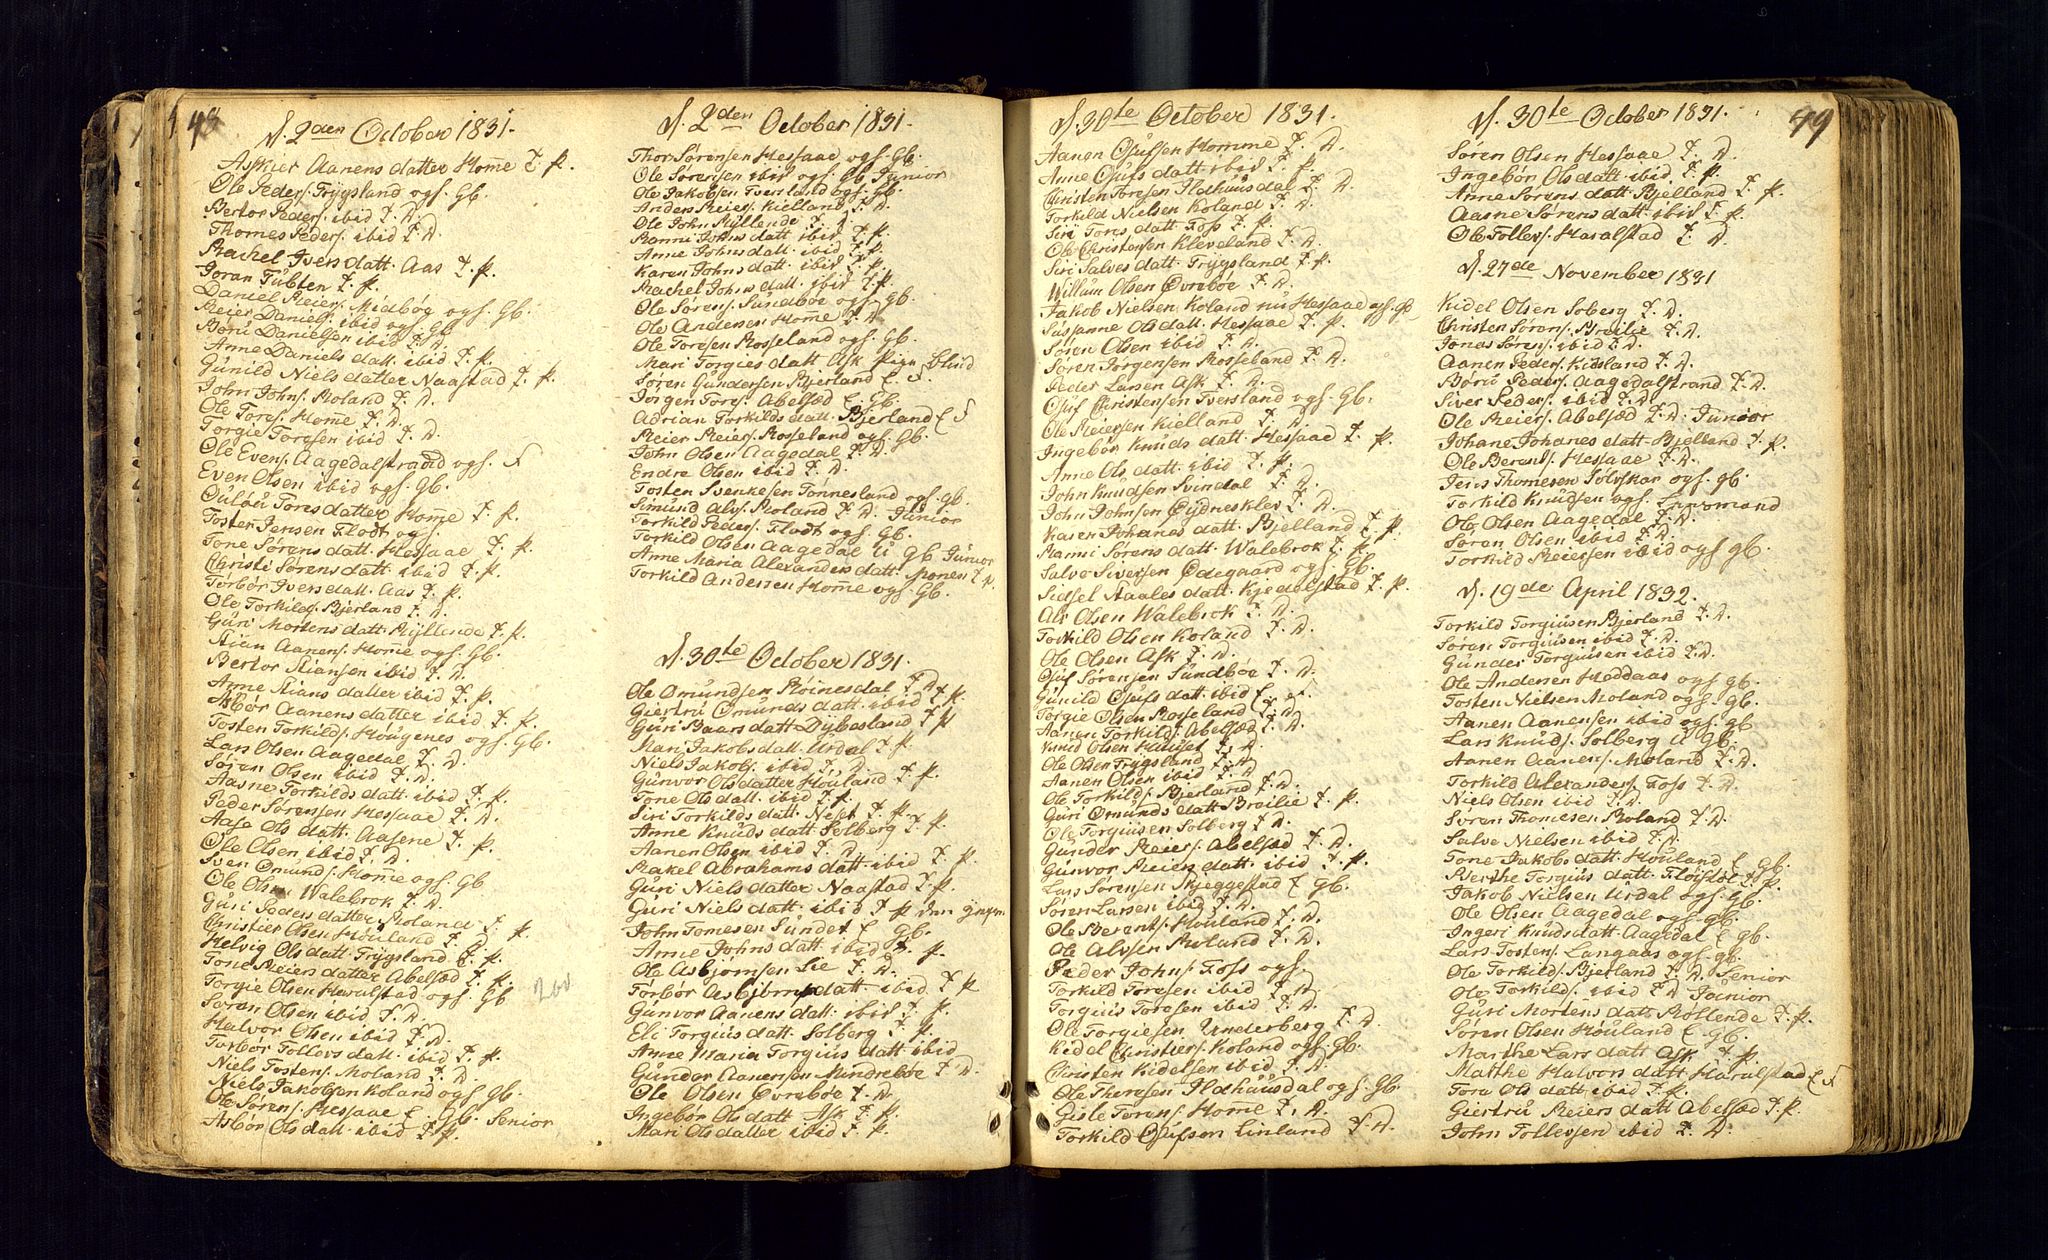 48
d. 2den October 1831.
Askier Aanensdatter Home t. p.
Ole Peders. Trygsland ogs. Gb.
Bertor Peders. ibid t. d.
Thomes Peders. ibid t. d.
Rachel Iversdatt. Aas t. p.
Joran Tübten t. p.
Daniel Reiers. Midbøg ogs. Gb.
Reier Daniels. ibid ogs. Gb
Borü Danielsen ibid t. d.
Anne Daniels datt. ibid t. p.
Günild Niels datter Naastad t. p.
John Johns. Roland t. d.
Ole Tores. Home t. d.
Torgie Toresen ibid t. d.
Ole Evens. Aagedalstrand ogs. f
Even Olsen ibid ogs. Gb.
Gülöü Toresdatter Home t. p.
Tosten Jensen Flodt ogs.
Tone Sørens datt. Hessaae t. p.
Christi Sørens datt. ibid t. p.
Torbør Ivers datt. Aas t. p.
Ole Torkilds. Bjerland t. d.
Güri Mortens datt. Ryllende t. p.
Stian Aanens. Home ogs. Gb.
Bertor Stiansen ibid t. d.
Anne Stians datter ibid t. p.
Asbør Aanens datter ibid t. p.
Tosten Torkilds. Hougenes ogs. Gb.
Lars Olsen Aagedal t. d.
Søren Olsen ibid t. d.
Aasne Torkilds datt. ibid t. p.
Peder Sørensen Hessaae t. d.
Aase Ols datt. Aasene t. p.
Ole Olsen ibid t. d.
Sven Omünds. Home ogs. Gb
Ole Olsen Walebrok t. d.
Güri Peders datter Roland t. p.
Christier Olsen Houland t. d.
Helvig Ols datt. Trygsland t. p.
Tone Reiers datter Abelsæd t. p.
Torgie Olsen Haralstad ogs. Gb
Søren Olsen ibid t. d.
Halvor Olsen ibid t. d.
Torbør Tollevs datt. ibid t. p.
Niels Tostens. Moland t. d.
Niels Jakobsen Koland ogs Gb.
Ole Sørens. Hessaae E. Gb. Senior
Asbør Ols datt. ibid t. p.
d. 2den October 1831.
Thor Sørensen Hessaae ogs. Gb.
Ole Sørensen ibid ogs. Gb Junior
Ole Jakobsen Tversland ogs. Gb.
Anders Reiers. Kielland t. d.
Ole John Ryllende t. d.
Ranni Johns datt ibid t. p.
Anne Johns datt. ibid t. p.
Karen Johns datt. ibid t. p.
Rachel Johns datt. ibid t. p
Ole Sørens. Sundbøe ogs. gb.
Ole Andersen Home t. d
Ole Toresen Rosseland ogs. Gb.
Mari Torgies datt Ask Pige blind
Søren Gundersen Bjerland E f.
Jørgen Tores. Abelsæd E Gb.
Adrian Torkilds datt. Bjerland E f
Reier Reiers. Rosseland ogs. Gb.
John Olsen Aagedal t. d.
Endre Olsen ibid t. d.
Tosten Svenkesen Tønnesland ogs. gb.
Simund Alvs. Roland t. d. Junior
Torkild Peders. Flodt ogs. Gb.
Torkild Olsen Aagedal U gb Junior
Anne Maria Alexanders datt. Mones t. p
Torkild Andersen Home ogs. Gb.
d. 30te October 1831.
Ole Omundsen Røinesdal t. d.
Giertru Omunds datt. ibid t. p.
Güri Baars datt. Dybesland t p
Mari Jakobs datt. Urdal t. p.
Niels Jakobs. ibid t. d.
Günvor Ols datter Houland t. p.
Tone Ols datt. ibid t. p.
Siri Torkilds datt. Neset t. p.
Anne Knüds datt. Solberg t. p.
Aanen Olsen ibid t. d.
Rakel Abrahams datt. ibid t. p.
Güri Niels datter Naastad t. p.
Güri Niels datt. ibid t p den Yngre
John Tomesen Sundet E gb.
Anne Johns datt ibid t. p.
Ole Asbjørnsen Lie t. d.
Torbør Asbjørns datt. ibid t. p
Gunvor Aanens datt. ibid t. p.
Eli Torgius datt. Solberg t. p.
Anne Maria Torgius datt ibid
Günder Aanensen Mindrebøe t. d.
Ole Olsen Øvrebøe t. d.
Ingebør Ols datt. Ask t. p.
Mari Ols datter ibid t. p.
260
d. 30te October 1831.
Aanen Osufsen Homme t. d.
Anne Osufs datt ibid t. p.
Christen Toresen Ildhüüsdal t. d.
Torkild Nielsen Koland t. d.
Siri Tores datt. Foss t. p.
Ole Christensen Kleveland t. d.
Siri Salves datt. Trygsland t. p.
Willum Olsen Øvrebøe t. d.
Jakob Nielsen Koland nu Hessaae ogs. gb
Susanne Ols datt. Hessaae t. p.
Søren Olsen ibid t. d.
Søren Jørgensen Rosseland t. d.
Peder Larsen Ask t. d.
Osuf Christensen Tversland ogs. Gb.
Ole Reiersen Kielland t. d.
Ingebør Knuds datt. Hessaae t. p.
Anne Ols datt. ibid t. p.
John Knudsen Svindal t. d.
John Johnsen Eydneskley t. d.
Karen Johanes datt. Bjelland t. p.
Ranni Sørens datt. Walebrok t. p.
Salve Siversen Ødegaard ogs. Gb.
Sidsel Staales datt. Kjedelstad t. p.
Als Olsen Walebrok t. d.
Torkild Olsen Koland t. d.
Ole Olsen Ask t. d.
Osuf Sørensen Sundbøe t. d.
Günild Osufs datt. ibid E. f.
Torgie Olsen Rosseland t. d.
Aanen Torkilds. Abelsæd t. d.
Knud Olsen Huüset t. d.
Ole Olsen Trygsland t. d.
Aanen Olsen ibid t. d
Ole Torkilds. Bjerland t. d.
Güri Omünds datt Breilie t. p.
Ole Torgiüsen Solberg t. d.
Günder Reiers. Abelsæd t. d.
Günvor Reiers datt. ibid t. p.
Lars Sørensen Skjeggestad E gb.
Søren Larsen ibid t. d.
Ole Berents. Houland t. d.
Ole Alvsen Roland t. d.
Peder Johns. Foss ogs.
Torkild Toresen ibid t. d.
Torgius Toresen ibid t. d.
Ole Torgiesen Underberg t. d.
Kidel Christiers. Koland ogs. Gb.
Christen Kidelsen ibid t. d.
Ole Thoresen Ildhüüsdal ogs. Gb.
Gisle Torens. Home t. d.
Torkild Osufsen Linland t. d.
99
d. 30te October 1831.
Søren Olsen Hessaae t. d.
Ingebør Ols datt. ibid. t. p.
Anne Sørens datt. Bjelland t. p.
Aasne Sørens datt. ibid t. p.
Ole Tollevs. Haralstad t. d.
d. 27de November 1831
Kidel Olsen Soberg t. d.
Christen Sørens. Breilie t. d.
Jonas Sørens. ibid t. d.
Aanen Peders. Kidsland t. d.
Børü Peders. Aagedalstrand t. d.
Siver Peders. ibid t. d
Ole Reiers. Abelsæd t. d. Junior
Johane Johanes datt. Bjelland t. p.
Ole Berents. Hessaae t. d.
Jens Thomesen Solvskar ogs. gb.
Torkild Knüdsen ogs. Lensmand
Ole Olsen Aagedal t. d.
Søren Olsen ibid t. d.
Torkild Reiersen ibid ogs gb.
d. 19de April 1832.
Torkild Torgiusen Bjerland t. d.
Søren Torgiüsen ibid t. d.
Günder Torgiusen ibid t. d.
Ole Andersen Heddaas ogs gb.
Tosten Nielsen Moland ogs. Gb.
Aanen Aanensen ibid ogs. gb
Lars Knuds. Solberg U Gb.
Aanen Aanens. Moland t. d.
Torkild Alexanders. Foss t. d.
Niels Olsen ibid t. d.
Søren Thomesen Roland t. d.
Salve Nielsen ibid t. d.
Tone Jakobs datt. Houland E gb.
Berthe Torgius datt. Fløistøl t. p.
Jakob Nielsen Urdal ogs. gb.
Ole Olsen Aagedal ogs. gb.
Ingeri Knüds datt. Aagedal E gb.
Lars Tostens. Langaas ogs. gb.
Ole Torkilds. Bjerland t. d. Senior
Ole Torkilds. ibid t. d Junior
Güri Mortens datt. Røllende t. p.
Søren Olsen Houland E gb.
Marthe Lars datt Ask t. p.
Matthe Halvors datt Haralstad E f
Tore Ols datt. ibid t. p.
Giertru Reiers datt Abelsæd t. p.
John Tollevsen ibid t. d.